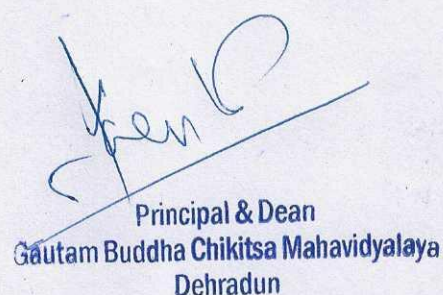 Principal & Dean
Gautam Buddha Chikitsa Mahavidyalaya
Dehradun